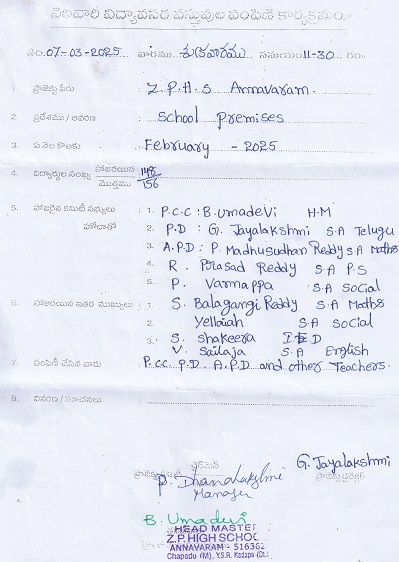 నెలవారీ విద్యావసర వస్తువుల పంపిణీ కార్యక్రమం.
తేది. 07-03-2025 వారము శుక్రవారము సమయం 11-30 గం.
1. ప్రాజెక్టు పేరు : Z.P.H.S Annavaram.
2. ప్రదేశము / ఆవరణ : School Premises
3. ఏ నెల కొఱకు : February - 2025
4. విద్యార్థుల సంఖ్య హాజరయిన మొత్తము : 148/156
5. హాజరైన కమిటీ సభ్యులు : 1. P.C.C : B. Umadevi H.M
హోదాతో 2. P.D : G. Jayalakshmi S.A Telugu
3. A.P.D : P. Madhusudhan Reddy S.A Maths
4. R. Prasad Reddy S.A P.S
5. P. Varnappa S.A Social
6. హాజరయిన ఇతర ముఖ్యులు : 1. S. Balagangi Reddy S.A Maths
2. Yellaiah S.A Social
3. S. Shakeera I E D
V. Sailaja S.A English
7. పంపిణీ చేసిన వారు : P.C.C. P.D. A.P.D and other Teachers.
8. వివరణ / సూచనలు :
చైర్‌మెన్ G. Jayalakshmi
P. Dhanalakshmi ప్రాజెక్టు డైరెక్టర్
Manager
B. Umadevi
HEAD MASTER
Z.P. HIGH SCHOOL
ANNAVARAM - 516362
Chapadu (M), Y.S.R. Kadapa (Dt.)